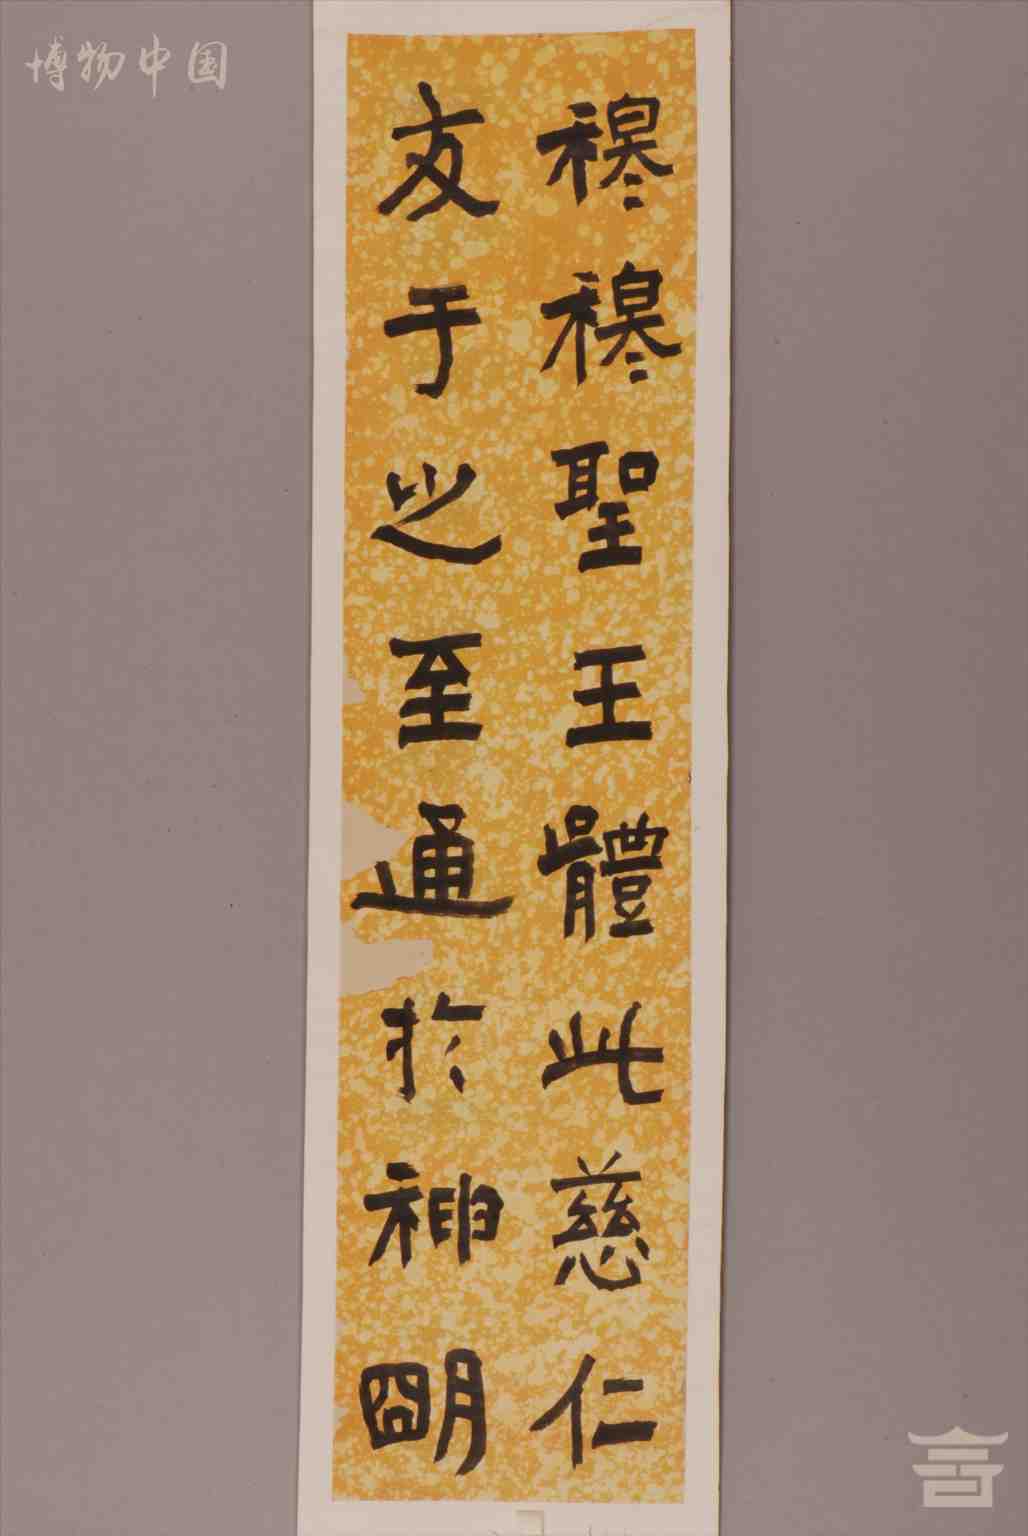 博物中国
穆穆聖王體此慈仁
友于之至通於神朙